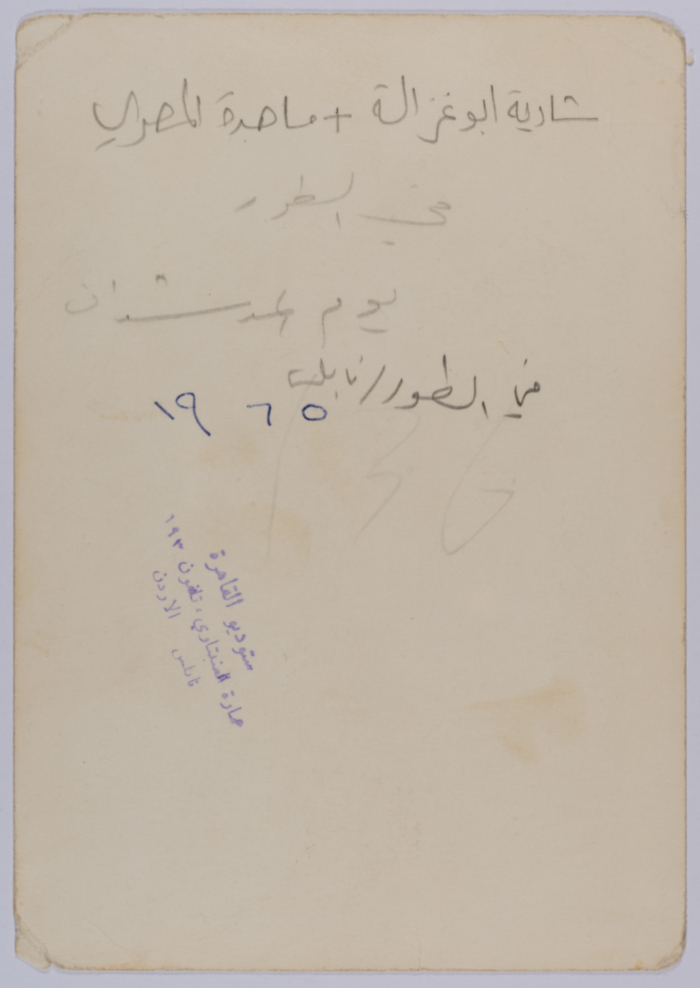 شادية ابو غزالة + ماجدة المصري
في الطور
يوم المرشدات
في الطور / نابلس
١٩٦٥
ستوديو القاهرة
عمارة العنبتاوي ، تلفون ١٩٣
نابلس الاردن